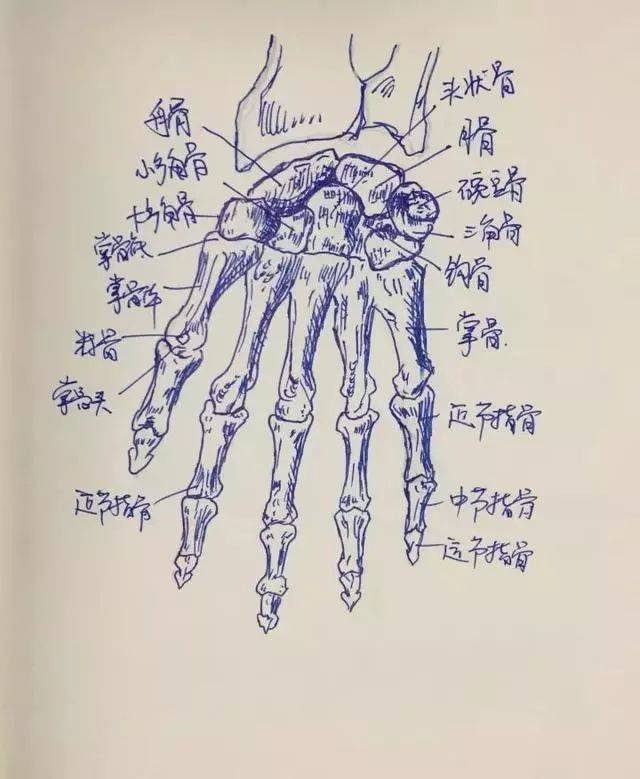 舟骨
小多角骨
大多角骨
掌骨底
掌骨体
籽骨
掌骨头
近节指骨
头状骨
月骨
豌豆骨
三角骨
钩骨
掌骨
近节指骨
中节指骨
远节指骨